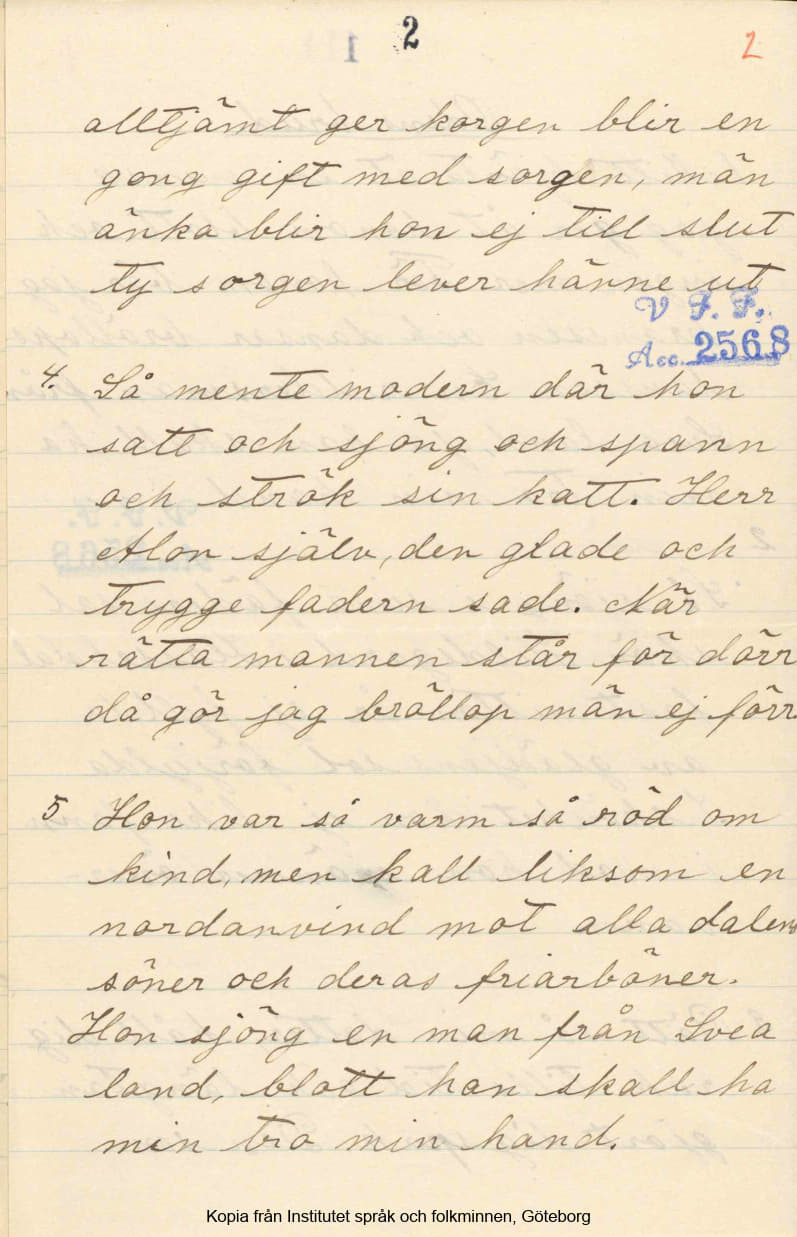 2
2
alltjämt ger korgen blir en
gong gift med sorgen, män
änka blir hon ej till slut
ty sorgen lever hänne ut
V. F. F.
Acc. 2568
4. Så mente modern där hon
satt och sjöng och spann
och strök sin katt. Herr
Alon själv, den glade och
trygge fadern sade. När
rätta mannen står för dörr
då gör jag bröllop män ej förr
5 Hon var så varm så röd om
kind, men kall liksom en
nordanvind mot alla dalens
söner och deras friarböner.
Hon sjöng en man från Svea
land, blott han skall ha
min tro min hand.
Kopia från Institutet språk och folkminnen, Göteborg